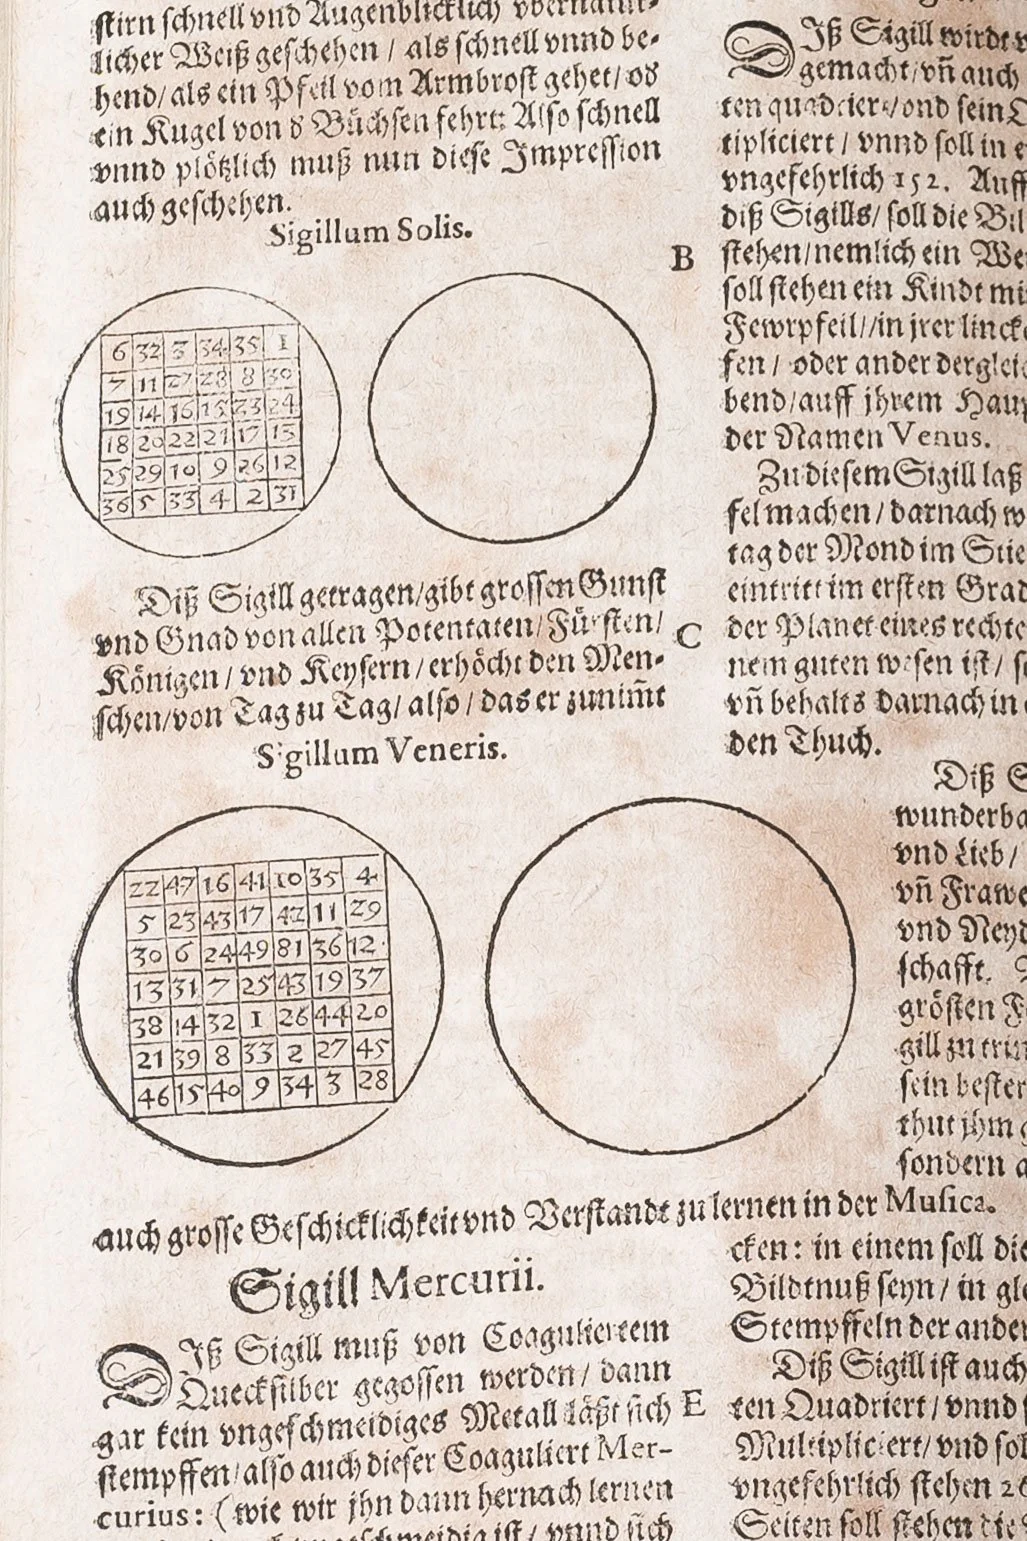 stirn schnell vnd Augenblicklich
licher Weiß geschehen / als schnell vnnd be-
hend/ als ein Pfeil vom Armbrost gehet/ od
ein Kugel von d Büchsen fehrt: Also schnell
vnnd plötzlich muß nun diese Impression
auch geschehen.
Sigillum Solis.
6 32 3 34 35 1
7 11 27 28 8 30
19 14 16 15 23 24
18 20 22 21 17 13
25 29 10 9 26 12
36 5 33 4 2 31
Diß Sigill getragen/gibt grossen Gunst
vnd Gnad von allen Potentaten/ Fürsten/
Königen / vnd Keysern / erhöcht den Men-
schen/von Tag zu Tag/ also / das er zunim̄t
Sigillum Veneris.
22 47 16 41 10 35 4
5 23 43 17 42 11 29
30 6 24 49 81 36 12
13 31 7 25 43 19 37
38 14 32 1 26 44 20
21 39 8 33 2 27 45
46 15 40 9 34 3 28
auch grosse Geschicklichkeit vnd Verstandt zu lernen in der Musica.
Sigill Mercurii.
DIß Sigill muß von Coaguliertem
Quecksilber gegossen werden / dann
gar kein vngeschmeidiges Metall läßt sich
stempffen/ also auch dieser Coaguliert Mer-
curius: (wie wir jhn dann hernach lernen
vnnd sich
B
C
E
DIß Sigill wirdt
gemacht/ vn̄ auch
ten quadriert/ vnd sein
tipliciert / vnnd soll in
vngefehrlich 152. Auff
diß Sigills/ soll die
stehen/nemlich ein
soll stehen ein Kindt
Fewrpfeil/ /in jrer
fen / oder ander
bend/auff jhrem
der Namen Venus.
Zu diesem Sigill laß
fel machen / darnach
tag der Mond im
eintritt im ersten
der Planet eines
nem guten wesen ist/
vn̄ behalts darnach in
den Thuch.
Diß
vnd Lieb /
vn̄
vnd
schafft.
grösten
gill zu
sein
thut jhm
sondern
cken: in einem soll die
Bildtnuß seyn/ in
Stempffeln der
Diß Sigill ist auch
ten Quadriert / vnnd
Multipliciert/ vnd
vngefehrlich stehen
Seiten soll stehen die